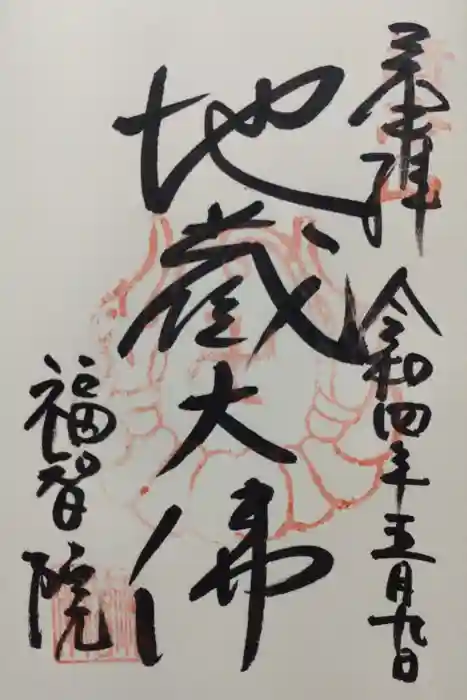 奉拝
令和四年五月九日
地蔵大佛
福智院